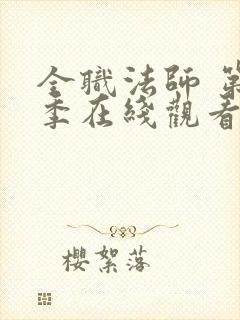 全職法師 第
季在綫觀看
櫻絮落